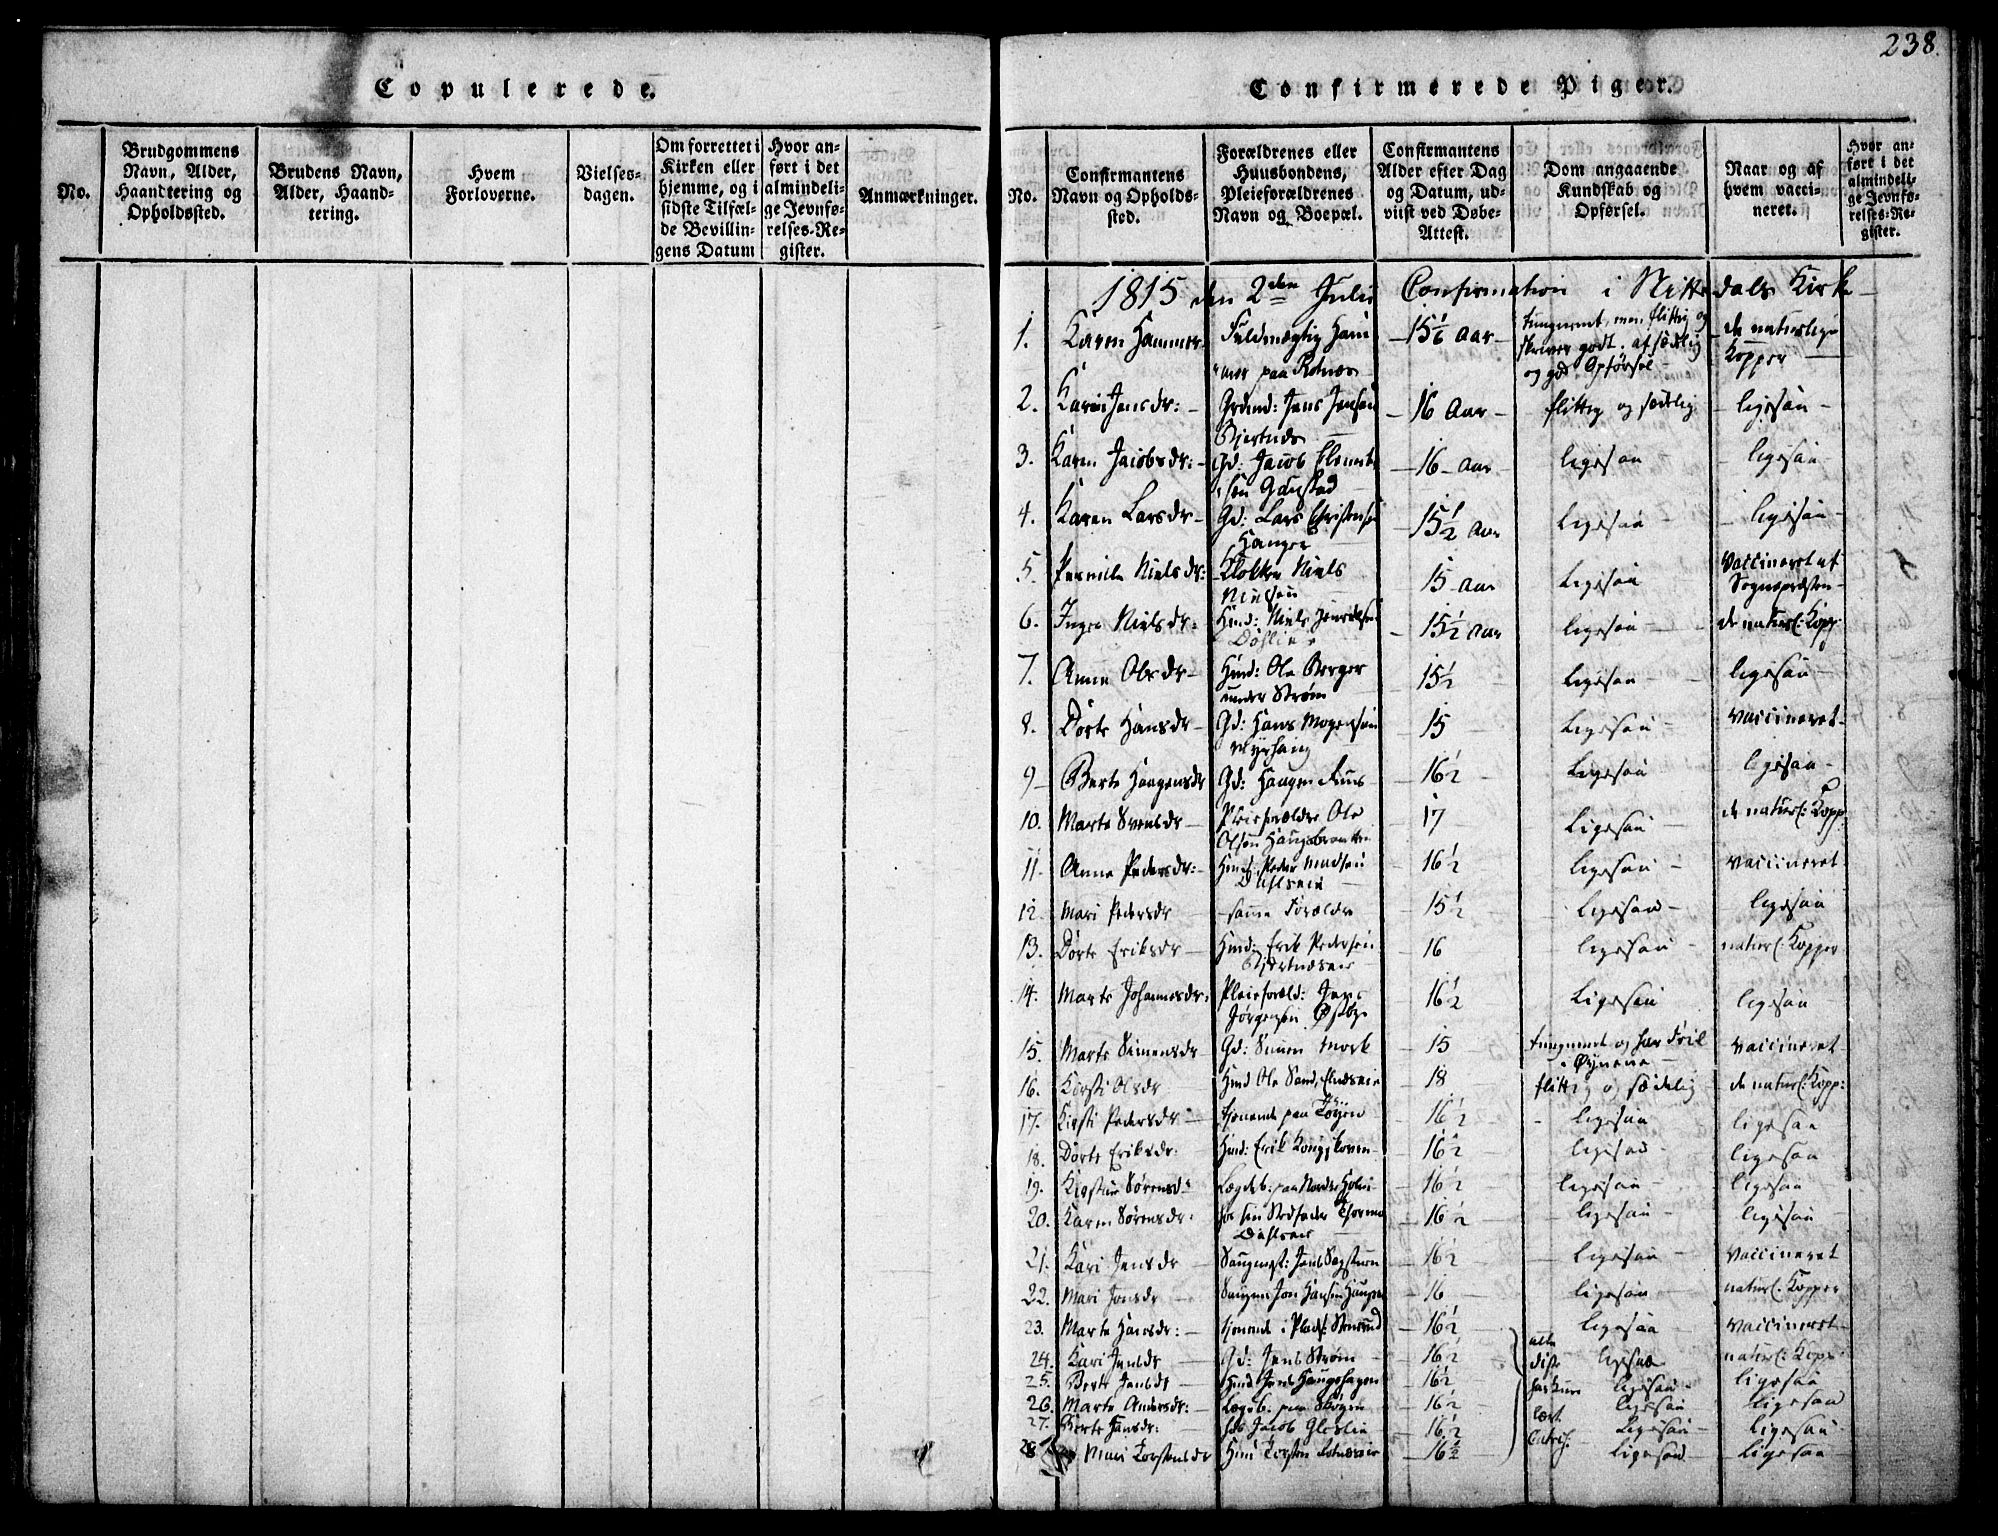 238.
Copulerede.
No.
Brudgommens Navn, Alder, Haandtering og Opholdssted.
Brudens Navn, Alder, Haandtering.
Hvem Forloverne.
Vielsesdagen.
Om forrettet i Kirken eller hjemme, og i sidste Tilfælde Bevillingens Datum
Hvor anført i det almindelige Jevnførelses-Register.
Anmærkninger.
Confirmerede Piger.
No.
Confirmantens Navn og Opholdssted.
Forældrenes eller Huusbondens, Pleieforældrenes Navn og Boepæl.
Confirmantens Alder efter Dag og Datum, udviist ved Døbe-Attest.
Dom angaaende Kundskab og Opførsel.
Naar og af hvem vaccineret.
Hvor anført i det almindelige Jevnførelses-Register.
1815 den 2den Julii Confirmation i Nittedals Kirke
1. Karen Hammer Fuldmægtig Hammer paa Rotnes 15½ Aar tungnemt, men flittig og skriver godt. af sædelig og god Opførsel de naturlige Kopper
2. Karen Jensdr: Grdmd: Jens Jensen 16 Aar flittig og sædelig ligesaa
3. Karen Jacobsdr: Gd: Jacob 16 Aar ligesaa ligesaa
4. Karen Larsdr Gd: Lars Christensen 15½ Aar ligesaa ligesaa
5. Pernille Nielsdr: Klokker Niels Nielsen 15 Aar ligesaa Vaccineret af Sognepræsten
6. Inger Nielsdr: Hmd: Niels 15½ Aar ligesaa de naturl: Kopp:
7. Anne Olsdr Hmd: Ole Berger under Strøm 15½ ligesaa ligesaa
8. Dorte Hansdr Gd: Hans Mogensen 15 ligesaa vaccineret
9 Berte Haagensdr Gd: Haagen 16½ ligesaa ligesaa
10. Marte Svensdr Pleieforældre Ole Olsen 17 ligesaa de naturl: Kopp:
11. Anne Pedersdr: Hmd: Peder Madsen 16½ ligesaa vaccineret
12. Mari Pedersdr samme Forældre 15½ ligesaa ligesaa
13. Dorte Eriksdr Hmd: Erik Pedersen 16 ligesaa naturl: Kopper
14. Marte Johannesdr: Pleieforæld: Jens Jørgensen Østby 16½ ligesaa ligesaa
15. Marte Simensdr Gd: Simen Mork 15 tungnemt og har Feil i Øynene vaccineret
16. Kirsti Olsdr Hmd Ole 18 flittig og sædelig de naturl: Kopp:
17. Kirsti Pedersdr tjenende paa Tøyen 16½ ligesaa ligesaa
18. Dorte Eriksdr: Hmd: Erik Kongskoven 16½ ligesaa ligesaa
19. Kirstine Sørensd: Lægdeb: paa Nordre Holm 16½ ligesaa ligesaa
20. Karen Sørensdr: hos sin Stedfader 16½ ligesaa ligesaa
21. Kari Jensdr Saugmest: Jens Sagstuen 16½ ligesaa vaccineret
22. Mari Jonsdr Jon Hansen 16 ligesaa naturl: Kopper
23. Marte Hansdr: tjenende i Plads: 16½ ligesaa vaccineret
24. Kari Jensdr Gd: Jens Strøm 16½ alle disse ligesaa naturl: Kopp:
25. Berte Jensdr Hmd Jens Haugehagen 16½ ligesaa ligesaa
26. Marte Andersdr: Lægdeb: paa 16½ lært ligesaa ligesaa
27. Berte Hansdr: hos Jacob 16½ ligesaa ligesaa
28 Mari Torstensdr Hmd Torsten 16½ ligesaa ligesaa